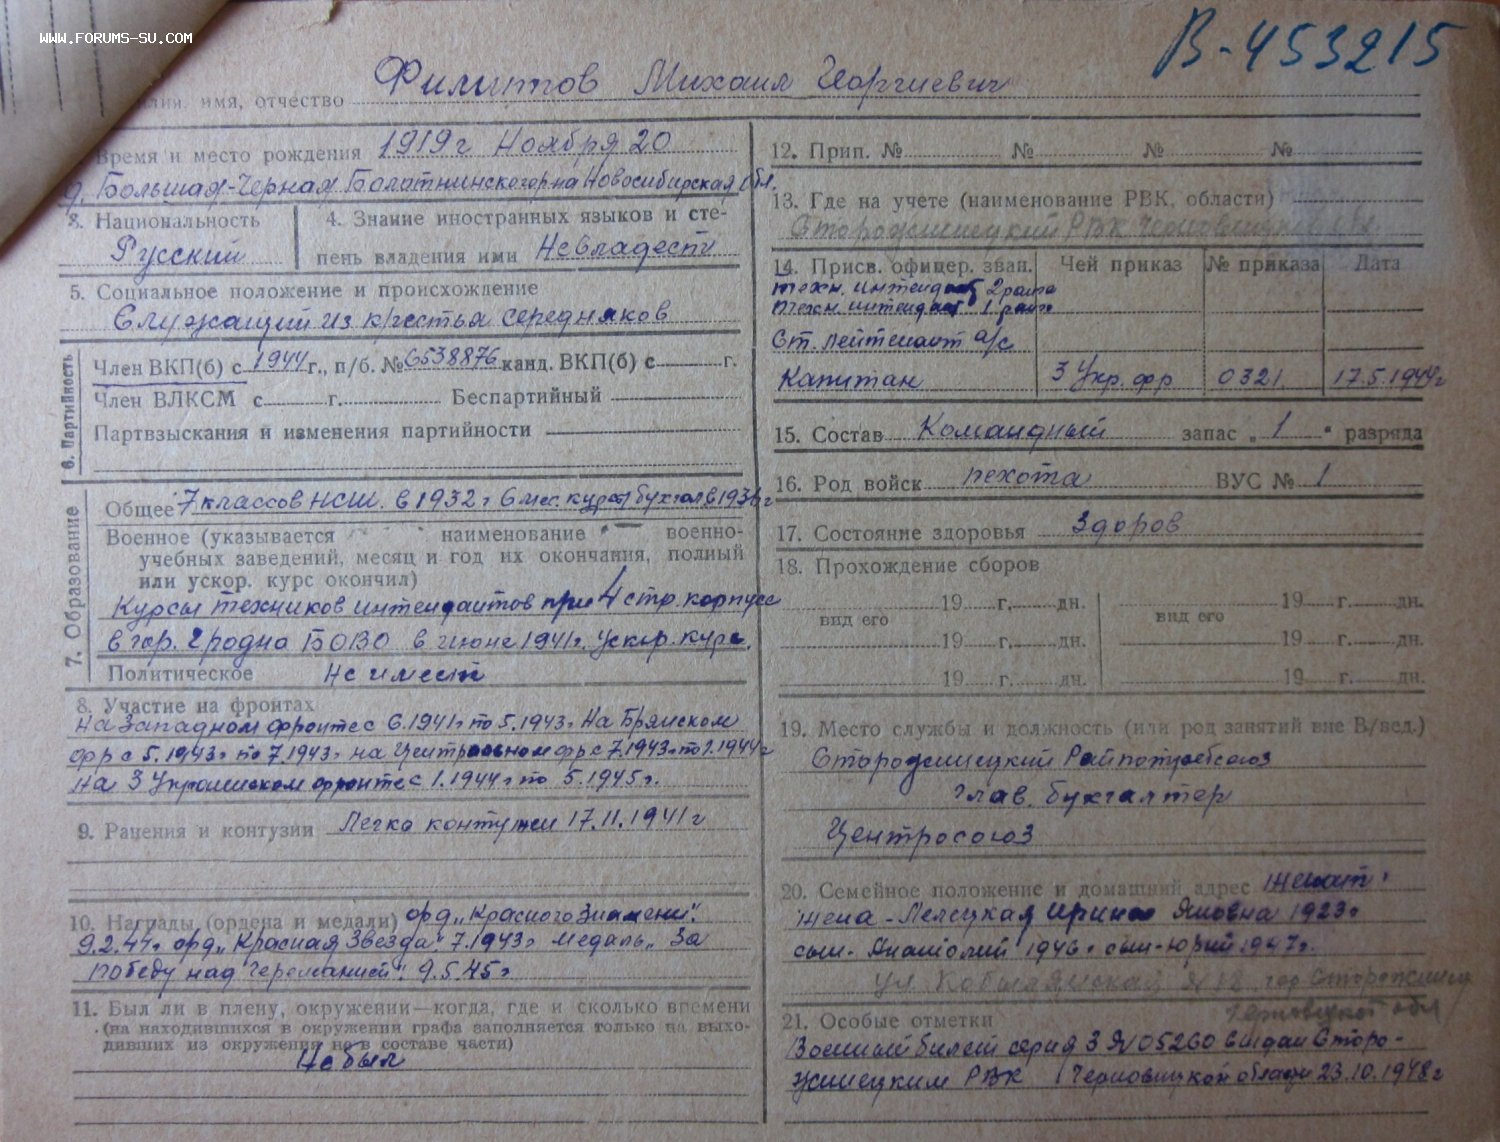 WWW.FORUMS-SU.COM
В-453215
имя, отчество Филиппов Михаил Георгиевич
Время и место рождения 1919г Ноября 20
д. Большая-Черная Болотнинского р-на Новосибирская обл.
3. Национальность
Русский
4. Знание иностранных языков и сте-
пень владения ими Не владеет
5. Социальное положение и происхождение
Служащий из крестья середняков
6. Партийность
Член ВКП(б) с 1944 г., п/б. № 6538876 канд. ВКП(б) с г.
Член ВЛКСМ с г. Беспартийный
Партвзыскания и изменения партийности
7. Образование
Общее 7 классов НСШ. в 1932г 6 мес. курсы бухгал в
Военное (указывается наименование военно-
учебных заведений, месяц и год их окончания, полный
или ускор. курс окончил)
Курсы техников интендантов при 4 стр. корпусе
в гор. Гродно БОВО в июне 1941г. ускор. курс.
Политическое Не имеет
8. Участие на фронтах
На Западном фронте с 6.1941г по 5.1943г На Брянском
фр с 5.1943г по 7.1943г на Центральном фр с 7.1943г по 1.1944г
На 3 Украинском фронте с 1.1944г по 5.1945г.
9. Ранения и контузии Легко контужен 17.11.1941г
10. Награды (ордена и медали) орд „Красного Знамени"
9.2.44г орд „Красная Звезда" 7.1943г медаль „За
победу над Германией" 9.5.45г
11. Был ли в плену, окружении—когда, где и сколько времени
(на находившихся в окружении графа заполняется только на выхо-
дивших из окружения не в составе части)
Не был
12. Прип. № № № №
13. Где на учете (наименование РВК, области)
Сторожинецкий РВК Черновицкой обл.
14. Присв. офицер. зван. Чей приказ № приказа Дата
техн. интендант 2 ранга
техн. интендант 1 ранга
Ст. лейтенант а/с
Капитан 3 Укр. фр 0321 17.5.1944г
15. Состав Командный запас „ 1 " разряда
16. Род войск пехота ВУС № 1
17. Состояние здоровья Здоров
18. Прохождение сборов
19 г. дн. 19 г. дн.
вид его вид его
19 г. дн. 19 г. дн.
19 г. дн. 19 г. дн.
19. Место службы и должность (или род занятий вне В/вед.)
Сторожинецкий Райпотребсоюз
глав. бухгалтер
Центросоюз
20. Семейное положение и домашний адрес Женат.
жена - Ирина 1923г
сын - Анатолий 1946г сын - Юрий 1947г.
ул. № 12 гор Сторожинец
Черновицкой обл
21. Особые отметки
Военный билет серия 3 № 05260 выдан Сторо-
жинецким РВК Черновицкой области 23.10.1948г